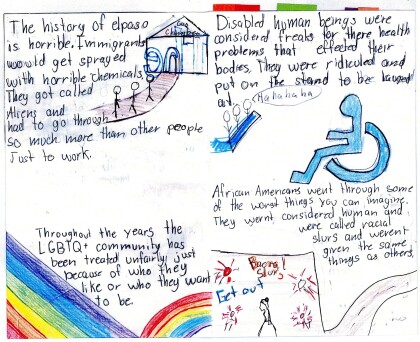 The history of elpaso
is horrible. Immigrants
would get sprayed
with horrible chemicals.
They got called
Aliens and
had to go through
so much more than other people
Just to work.
Gas
Chambers
Disabled human beings were
considerd freaks for there health
problems that effected their
bodies. They were ridiculed and
put on the stand to be lauged
at.
Hahahaha
Throughout the years the
LGBTQ+ community has
been treated unfairly just
because of who they
like or who they want
to be.
African Americans went through some
of the worst things you can imagine.
They wernt considered human and
were called racial
slurs and werent
given the same
things as others.
Racial
Slurs
Get out